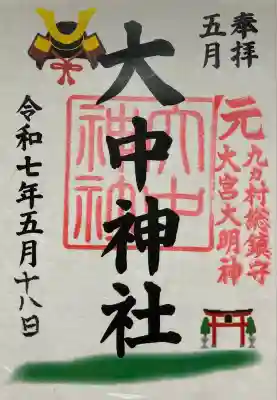 奉拝
五月
元
九カ村総鎮守
大宮大明神
大中神社
大中
神社
令和七年五月十八日